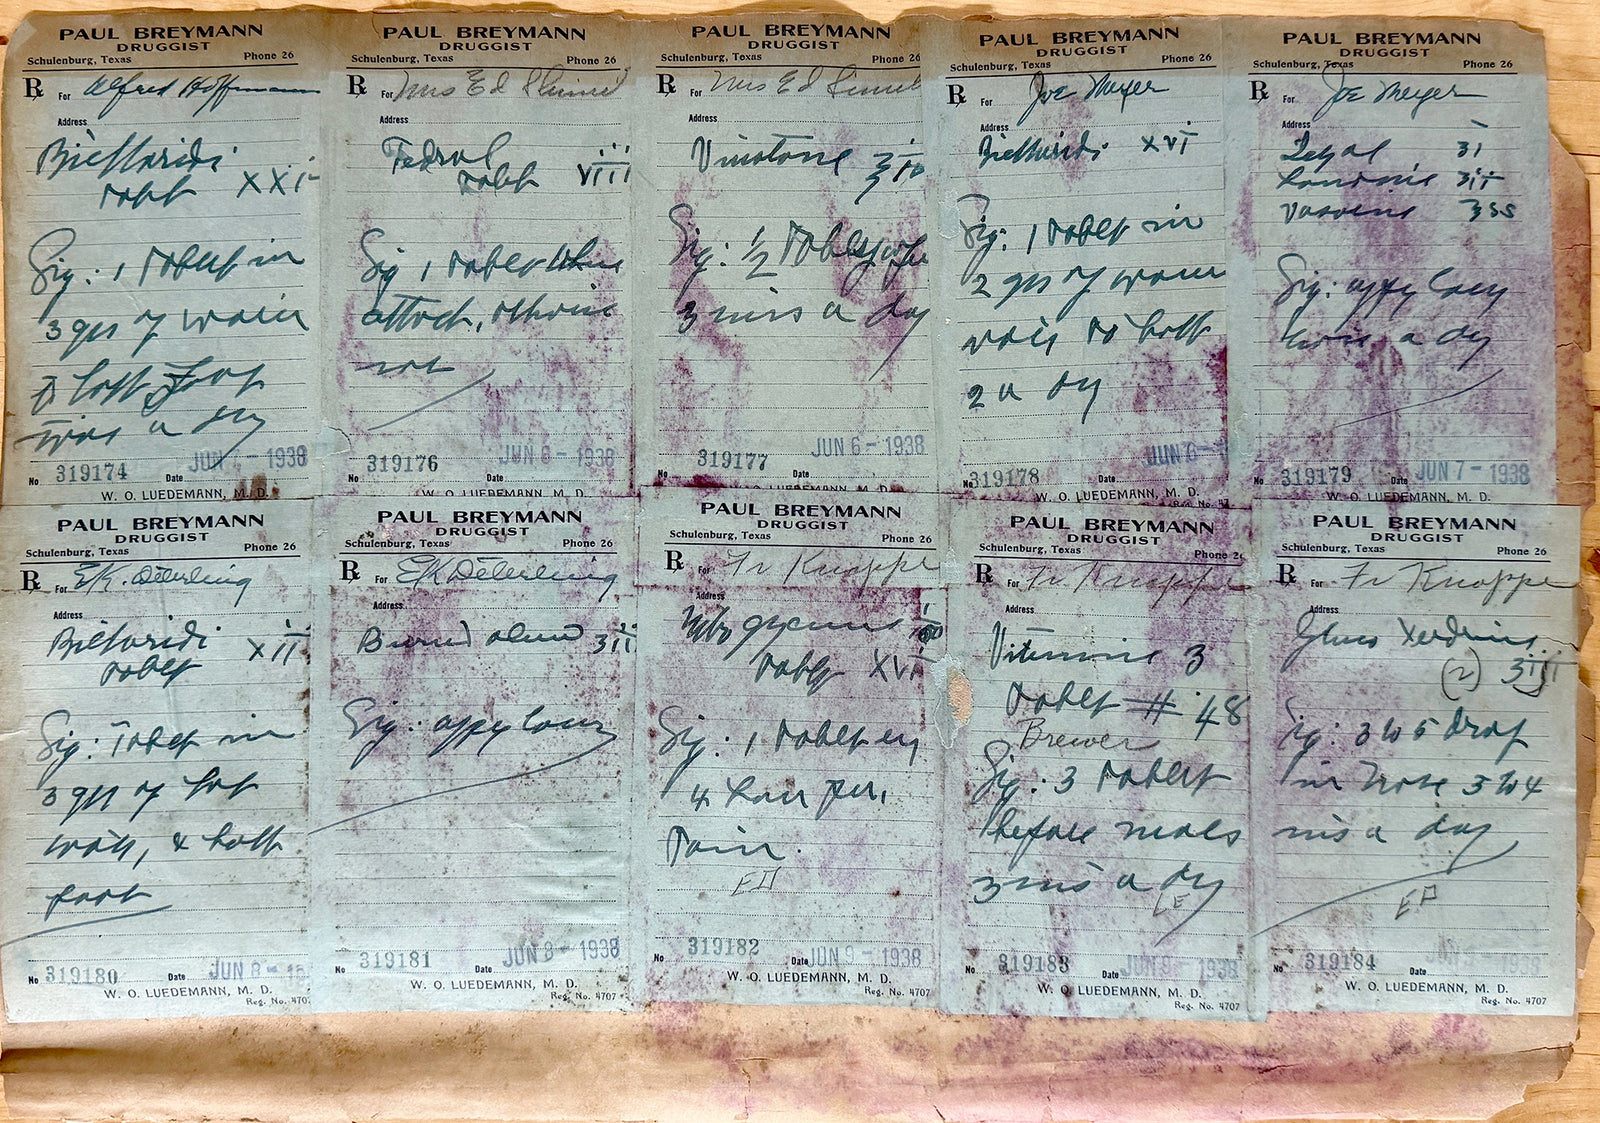 PAUL BREYMANN
DRUGGIST
Schulenburg, Texas Phone 26
℞ For Alfred Hoffmann
Address
tablt XXI
Sig: 1 tablet in
3 gls of water
twis a day
No 319174 Date JUN - 1938
W. O. LUEDEMANN, M. D.
PAUL BREYMANN
DRUGGIST
Schulenburg, Texas Phone 26
℞ For Mrs Ed
Address
Fedrol
tablt VIII
Sig 1 tablet when
attack, otherwise
not
No 319176 Date JUN 6 - 1938
PAUL BREYMANN
DRUGGIST
Schulenburg, Texas Phone 26
℞ For Mrs Ed
Address
Vinotone
Sig: ½ tables
3 times a day
No 319177 Date JUN 6 - 1938
PAUL BREYMANN
DRUGGIST
Schulenburg, Texas Phone 26
℞ For Joe Meyer
Address
XVI
Sig: 1 tablet in
2 gls of warm
water to bath
2 a day
No 319178 Date JUN 6 -
W. O. LUEDEMANN, M. D.
PAUL BREYMANN
DRUGGIST
Schulenburg, Texas Phone 26
℞ For Joe Meyer
Address
ʒi
ʒii
ʒss
Sig: apply locy
twice a day
No 319179 Date JUN 7 - 1938
W. O. LUEDEMANN, M. D.
PAUL BREYMANN
DRUGGIST
Schulenburg, Texas Phone 26
℞ For E.K. Deterling
Address
tablet XII
Sig: 1 tablet in
3 gls of hot
water, & bath
foot
No 319180 Date JUN 8 - 19
W. O. LUEDEMANN, M. D.
Reg. No. 4707
PAUL BREYMANN
DRUGGIST
Schulenburg, Texas Phone 26
℞ For EK Deterling
Address
Burnd alum ʒii
Sig: apply locy
No 319181 Date JUN 8 - 1938
W. O. LUEDEMANN, M. D.
Reg. No. 4707
PAUL BREYMANN
DRUGGIST
Schulenburg, Texas Phone 26
℞ For Fr Knappe
Address
tablt XVI
Sig: 1 tablet ey
4 hour for
Pain.
No 319182 Date JUN 9 - 1938
W. O. LUEDEMANN, M. D.
Reg. No. 4707
PAUL BREYMANN
DRUGGIST
Schulenburg, Texas Phone 26
℞ For Fr Knappe
Address
Vitamine B
tablet # 48
Brewer
Sig: 3 tablet
before meals
3 times a day
No 319183 Date JUN 9 - 1938
W. O. LUEDEMANN, M. D.
Reg. No. 4707
PAUL BREYMANN
DRUGGIST
Schulenburg, Texas Phone 26
℞ For Fr Knappe
Address
(2)
Sig: 3 to 5 drop
in nose 3 to 4
times a day
No 319184 Date
W. O. LUEDEMANN, M. D.
Reg. No. 4707